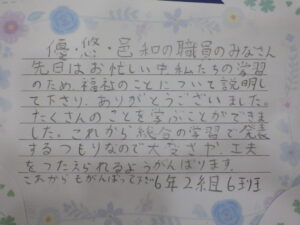 優・悠・邑和の職員のみなさん
先日はお忙しい中私たちの学習
のため、福祉のことについて説明し
て下さり、ありがとうございました。
たくさんのことを学ぶことができま
した。これから総合の学習で発表
するつもりなので大変さや工夫
をつたえられるようがんばります。
これからもがんばって下さい 6年2組6班